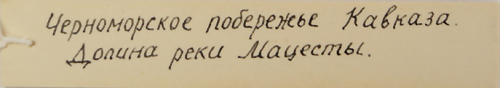 Черноморское побережье Кавказа.
Долина реки Мацесты.